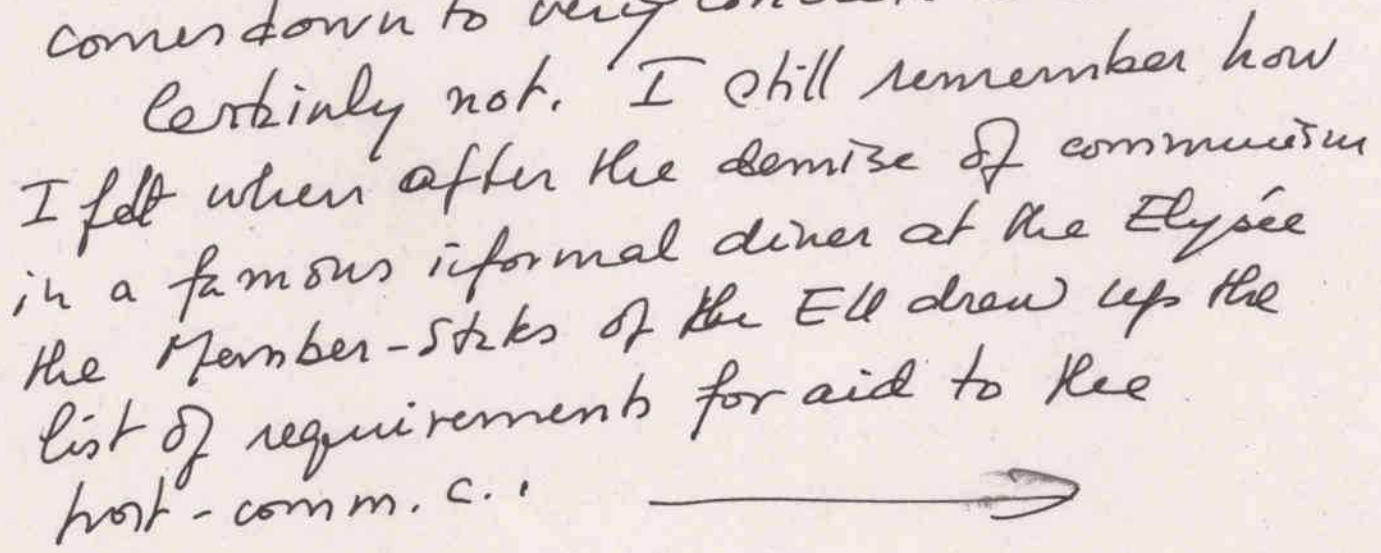 comes down to very
Certainly not. I still remember how
I felt when after the demise of communism
in a famous iformal diner at the Elysée
the Member-States of the EU drew up the
list of requirements for aid to the
post-comm. c..